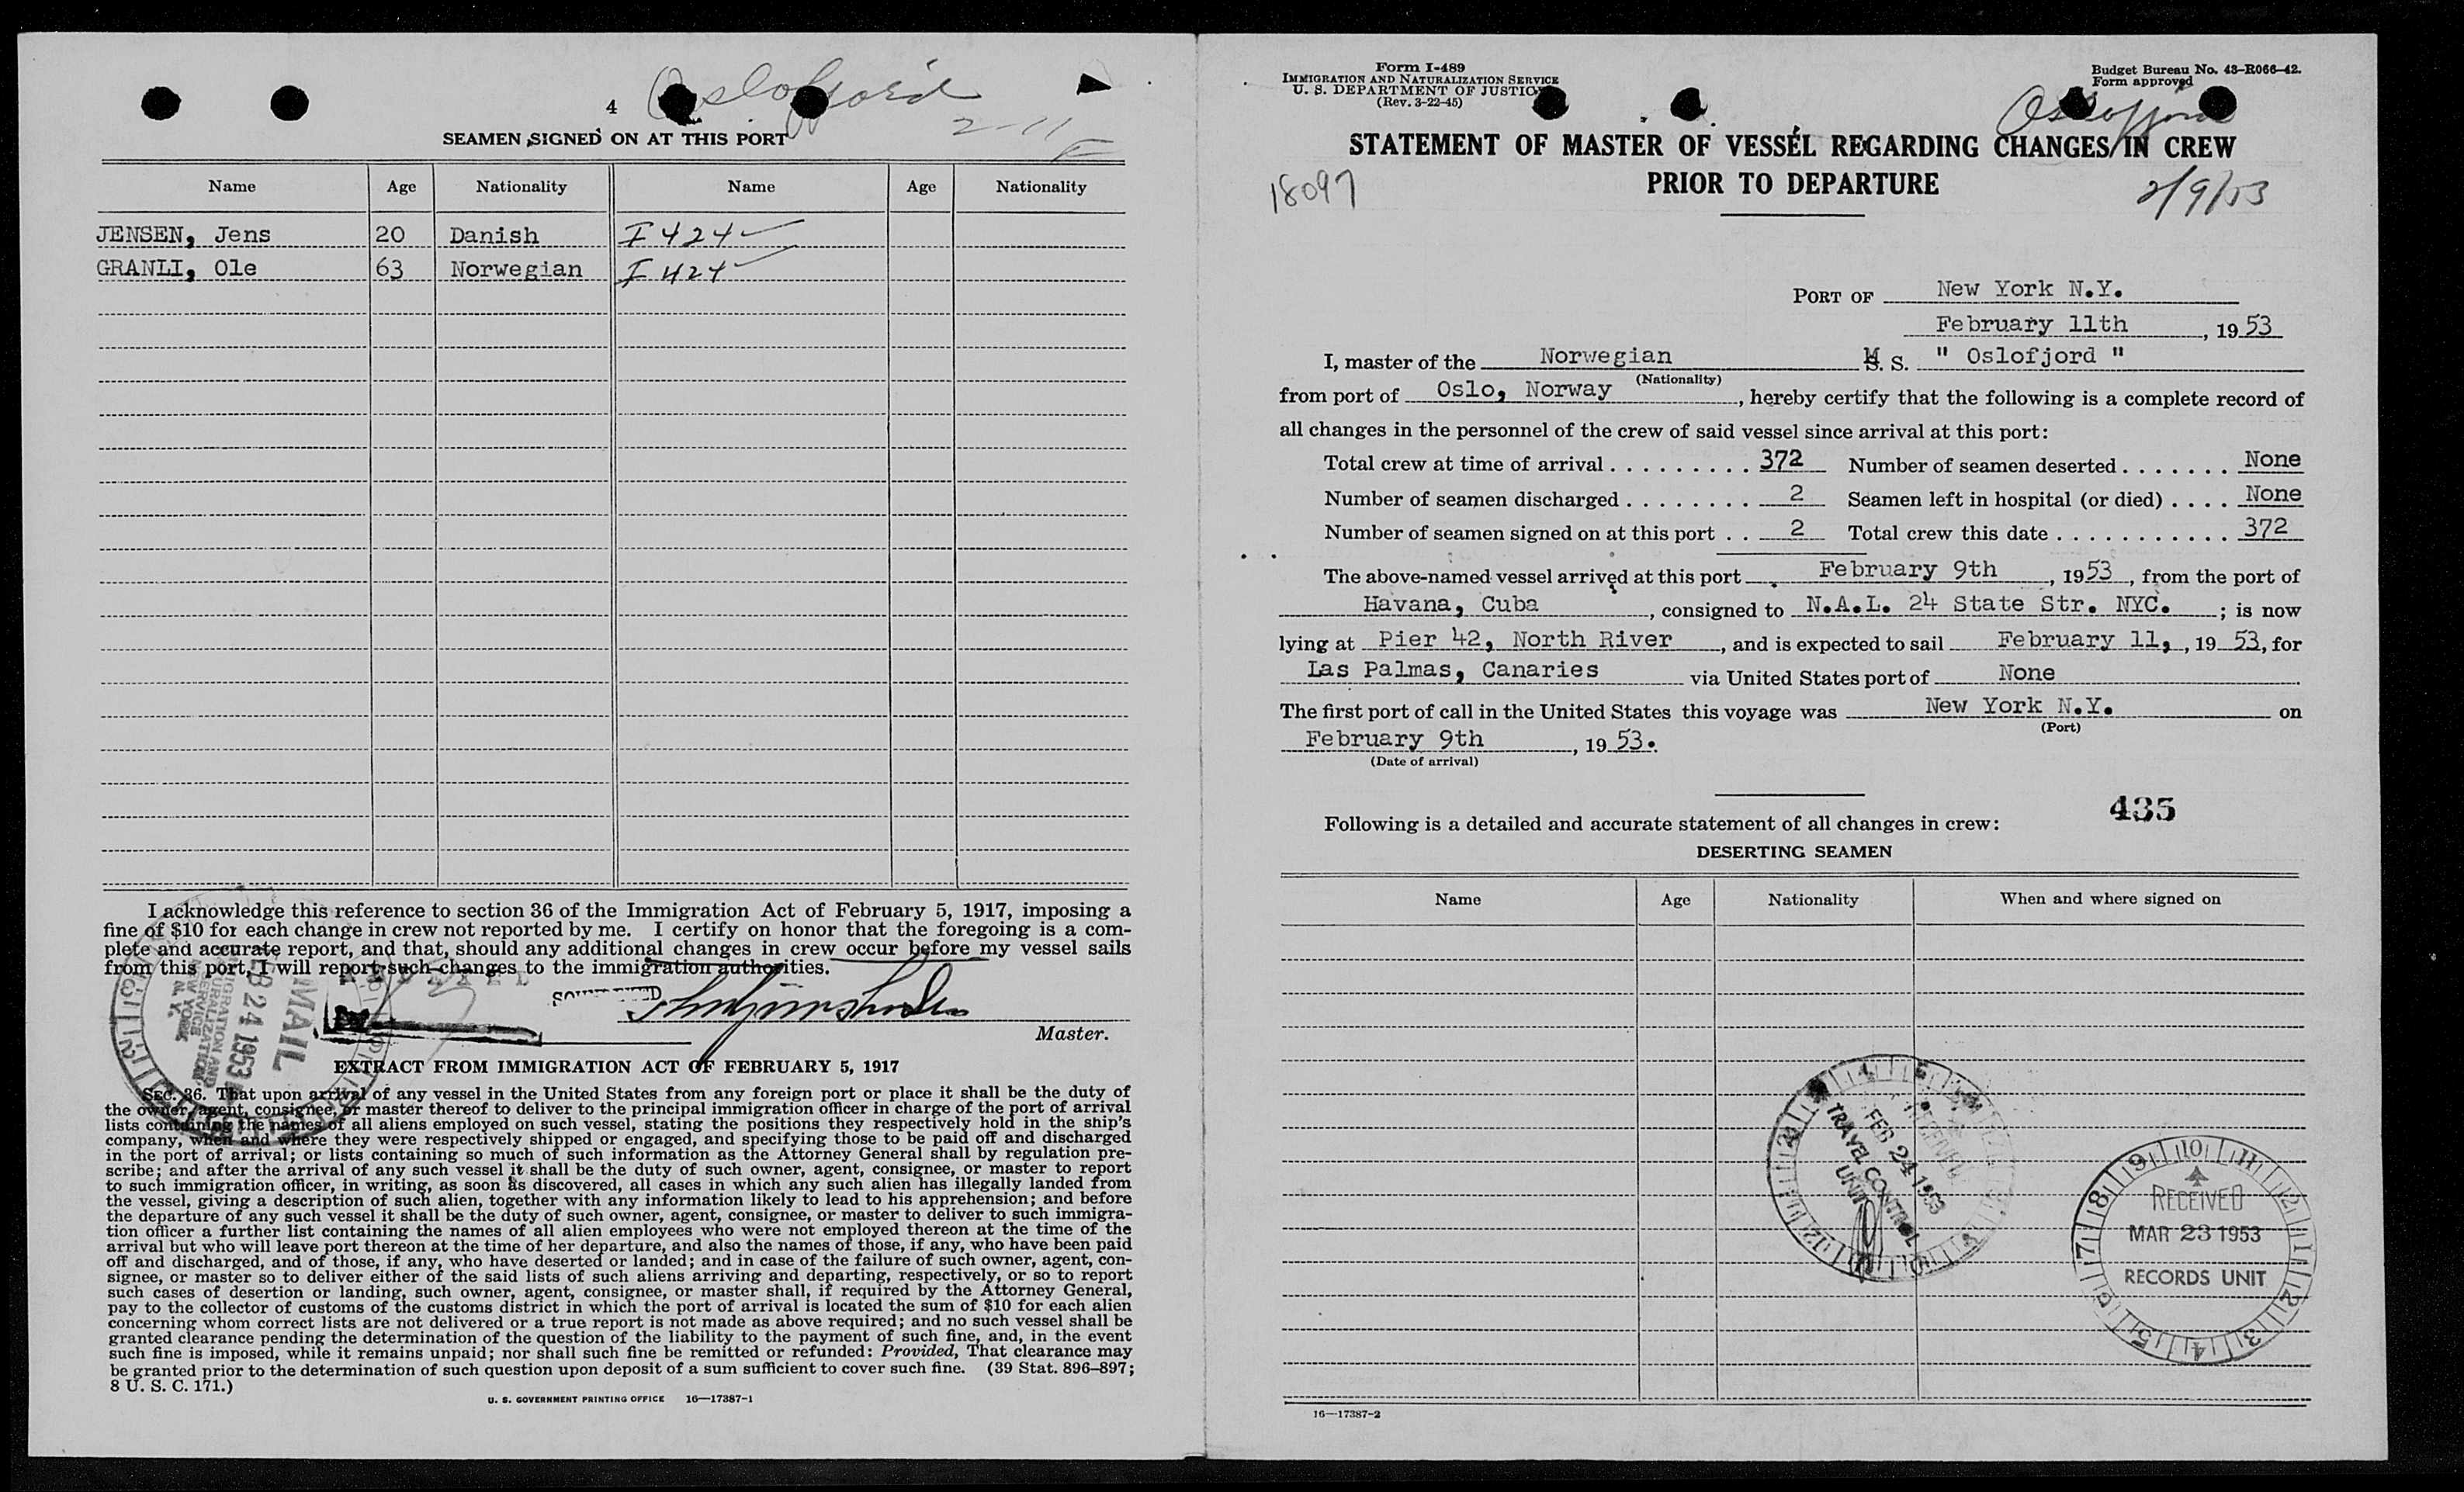 Oslofjord
4
2-11
SEAMEN SIGNED ON AT THIS PORT
Name Age Nationality Name Age Nationality
JENSEN, Jens 20 Danish I 424
GRANLI, Ole 63 Norwegian I 424
I acknowledge this reference to section 36 of the Immigration Act of February 5, 1917, imposing a
fine of $10 for each change in crew not reported by me. I certify on honor that the foregoing is a com-
plete and accurate report, and that, should any additional changes in crew occur before my vessel sails
from this port, I will report such changes to the immigration authorities.
Master.
MAIL
FEB 24 1953
IMMIGRATION AND
NATURALIZATION
SERVICE
NEW YORK
N. Y.
EXTRACT FROM IMMIGRATION ACT OF FEBRUARY 5, 1917
SEC. 36. That upon arrival of any vessel in the United States from any foreign port or place it shall be the duty of
the owner, agent, consignee, or master thereof to deliver to the principal immigration officer in charge of the port of arrival
lists containing the names of all aliens employed on such vessel, stating the positions they respectively hold in the ship's
company, when and where they were respectively shipped or engaged, and specifying those to be paid off and discharged
in the port of arrival; or lists containing so much of such information as the Attorney General shall by regulation pre-
scribe; and after the arrival of any such vessel it shall be the duty of such owner, agent, consignee, or master to report
to such immigration officer, in writing, as soon as discovered, all cases in which any such alien has illegally landed from
the vessel, giving a description of such alien, together with any information likely to lead to his apprehension; and before
the departure of any such vessel it shall be the duty of such owner, agent, consignee, or master to deliver to such immigra-
tion officer a further list containing the names of all alien employees who were not employed thereon at the time of the
arrival but who will leave port thereon at the time of her departure, and also the names of those, if any, who have been paid
off and discharged, and of those, if any, who have deserted or landed; and in case of the failure of such owner, agent, con-
signee, or master so to deliver either of the said lists of such aliens arriving and departing, respectively, or so to report
such cases of desertion or landing, such owner, agent, consignee, or master shall, if required by the Attorney General,
pay to the collector of customs of the customs district in which the port of arrival is located the sum of $10 for each alien
concerning whom correct lists are not delivered or a true report is not made as above required; and no such vessel shall be
granted clearance pending the determination of the question of the liability to the payment of such fine, and, in the event
such fine is imposed, while it remains unpaid; nor shall such fine be remitted or refunded: Provided, That clearance may
be granted prior to the determination of such question upon deposit of a sum sufficient to cover such fine. (39 Stat. 896–897;
8 U. S. C. 171.)
U. S. GOVERNMENT PRINTING OFFICE 16—17387-1
Form I-489
IMMIGRATION AND NATURALIZATION SERVICE
U. S. DEPARTMENT OF JUSTICE
(Rev. 3-22-45)
Budget Bureau No. 43-R066-42.
Form approved
Oslofjord
STATEMENT OF MASTER OF VESSEL REGARDING CHANGES IN CREW
PRIOR TO DEPARTURE
18097
2/9/53
PORT OF New York N.Y.
February 11th, 19 53
I, master of the Norwegian M. S. " Oslofjord "
(Nationality)
from port of Oslo, Norway, hereby certify that the following is a complete record of
all changes in the personnel of the crew of said vessel since arrival at this port:
Total crew at time of arrival . . . . . . . . . 372 Number of seamen deserted . . . . . . . None
Number of seamen discharged . . . . . . . . 2 Seamen left in hospital (or died) . . . . None
Number of seamen signed on at this port . . 2 Total crew this date . . . . . . . . . . . 372
The above-named vessel arrived at this port February 9th, 19 53, from the port of
Havana, Cuba, consigned to N.A.L. 24 State Str. NYC.; is now
lying at Pier 42, North River, and is expected to sail February 11, , 19 53, for
Las Palmas, Canaries via United States port of None
The first port of call in the United States this voyage was New York N.Y. on
(Port)
February 9th, 19 53.
(Date of arrival)
435
Following is a detailed and accurate statement of all changes in crew:
DESERTING SEAMEN
Name Age Nationality When and where signed on
RECEIVED
FEB 24 1953
TRAVEL CONTROL
UNIT
RECEIVED
MAR 23 1953
RECORDS UNIT
16—17387-2